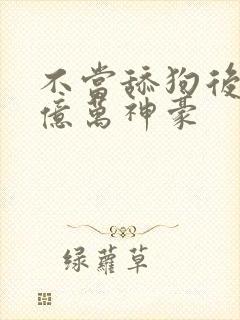 不當舔狗後
億萬神豪
绿蘿草